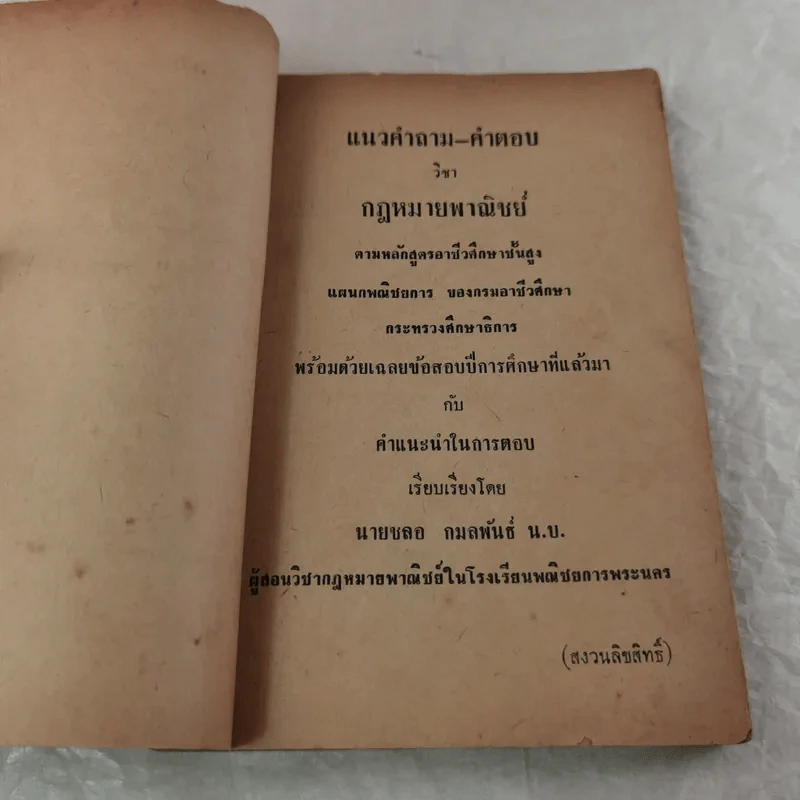 แนวคำถาม–คำตอบ
วิชา
กฎหมายพาณิชย์
ตามหลักสูตรอาชีวศึกษาชั้นสูง
แผนกพณิชยการ ของกรมอาชีวศึกษา
กระทรวงศึกษาธิการ
พร้อมด้วยเฉลยข้อสอบปีการศึกษาที่แล้วมา
กับ
คำแนะนำในการตอบ
เรียบเรียงโดย
นายชลอ กมลพันธ์ น.บ.
ผู้สอนวิชากฎหมายพาณิชย์ในโรงเรียนพณิชยการพระนคร
(สงวนลิขสิทธิ์)